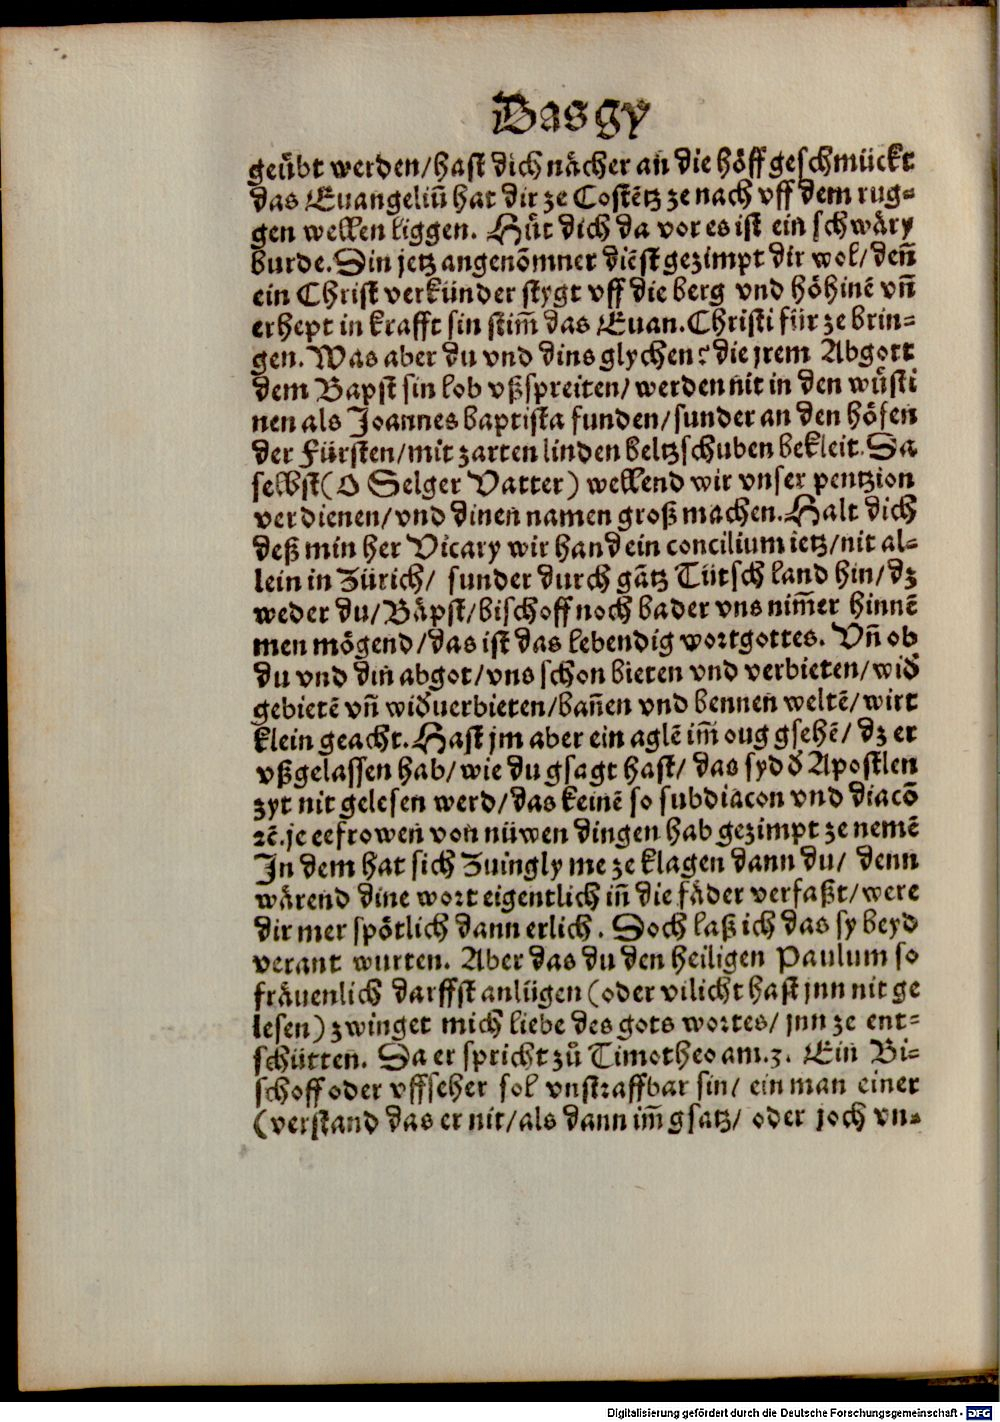 Das gy
geübt werden/hast dich nächer an die höff geschmückt
das Euangeliū hat dir ze Costētz ze nach vff dem rug-
gen wellen liggen. Hüt dich da vor es ist ein schwäry
burde. Din jetz angenōmner diēst gezimpt dir wol/deñ
ein Christ verkünder stygt vff die berg vnd höhinē vñ
erhept in krafft sin stim̄ das Euan. Christi für ze brin-
gen. Was aber du vnd dins glychen? die jrem Abgott
dem Bapst sin lob vßspreiten/werden nit in den wüsti
nen als Joannes baptista funden/sunder an den höfen
der Fürsten/mit zarten linden beltzschuben bekleit. Da
selbst (O Selger Vatter) wellend wir vnser pentzion
verdienen/vnd dinen namen groß machen. Halt dich
deß min her Vicary wir hand ein concilium ietz/nit al-
lein in Zürich/ sunder durch gātz Tütsch land hin/dz
weder du/Bäpst/bischoff noch bader vns nim̄er hinnē
men mögend/das ist das lebendig wort gottes. Vñ ob
du vnd din abgot/vns schon bieten vnd verbieten/wid̄
gebietē vñ wid̄uerbieten/bañen vnd bennen weltē/wirt
klein geacht. Hast jm aber ein aglē im̄ oug gsehē/ dz er
vßgelassen hab/wie du gsagt hast/ das syd d̄ Apostlen
zyt nit gelesen werd/das keinē so subdiacon vnd diacō
ꝛē. je eefrowen von nüwen dingen hab gezimpt ze nemē
In dem hat sich Zuingly me ze klagen dann du/ denn
wärend dine wort eigentlich iñ die fäder verfaßt/were
dir mer spötlich dann erlich. Doch laß ich das sy beyd
verant wurten. Aber das du den heiligen Paulum so
fräuenlich darffst anlügen (oder vilicht hast jnn nit ge
lesen) zwinget mich liebe des gots wortes/ jnn ze ent-
schütten. Da er spricht zů Timotheo am. 3. Ein Bi-
schoff oder vffseher sol vnstraffbar sin/ ein man einer
(verstand das er nit/als dann im̄ gsatz/ oder joch vn-
Digitalisierung gefördert durch die Deutsche Forschungsgemeinschaft - DFG